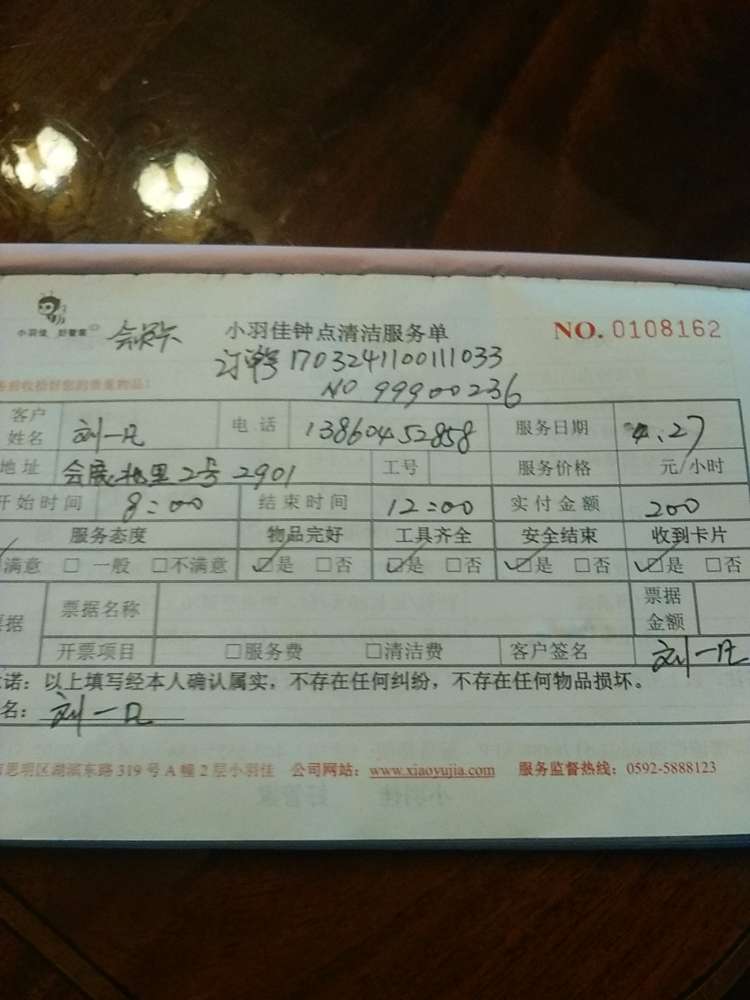 小羽佳 好管家 会员卡 小羽佳钟点清洁服务单 NO. 0108162
订单号 1703241100111033
务前收拾好您的贵重物品！ NO 99900236
客户姓名 刘一凡 电话 13860452858 服务日期 4.27
地址 会展北里2号2901 工号 服务价格 元/小时
开始时间 8:00 结束时间 12:00 实付金额 200
服务态度 物品完好 工具齐全 安全结束 收到卡片
满意 □ 一般 □不满意 ☑是 □否 ☑是 □否 ☑是 □否 ☑是 □否
据 票据名称 票据金额
开票项目 □服务费 □清洁费 客户签名 刘一凡
诺：以上填写经本人确认属实，不存在任何纠纷，不存在任何物品损坏。
名：刘一凡
思明区湖滨东路319号A幢2层小羽佳 公司网站：www.xiaoyujia.com 服务监督热线：0592-5888123